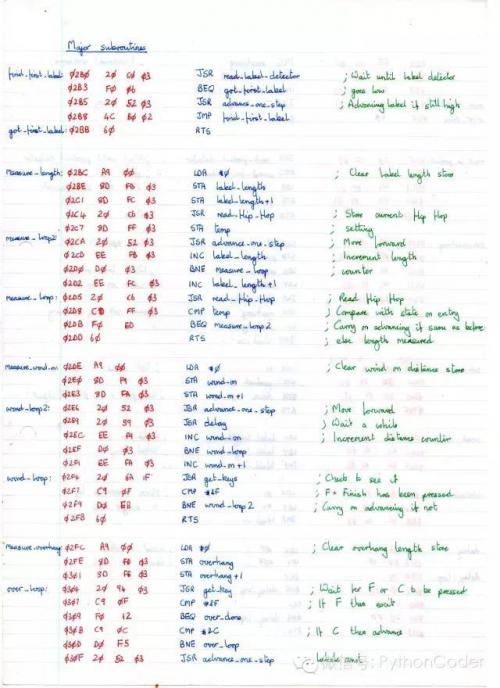 Major subroutines
find_first_label: φ2Bφ 2φ Cφ φ3 JSR read_label_detector ; Wait until label detector
φ2B3 Fφ φ6 BEQ got_first_label ; goes low
φ2B5 2φ 52 φ3 JSR advance_one_step ; Advancing label if still high
φ2B8 4C Bφ φ2 JMP find_first_label
got_first_label: φ2BB 6φ RTS
measure_length: φ2BC A9 φφ LDA #φ ; Clear label length store
φ2BE 8D FB φ3 STA label_length
φ2C1 8D FC φ3 STA label_length+1
φ2C4 2φ C6 φ3 JSR read_Hip_Hop ; Store current Hip Hop
φ2C7 8D FF φ3 STA temp ; setting
measure_loop2: φ2CA 2φ 52 φ3 JSR advance_one_step ; Move forward
φ2CD EE FB φ3 INC label_length ; Increment length
φ2Dφ Dφ φ3 BNE measure_loop ; counter
φ2D2 EE FC φ3 INC label_length+1
measure_loop: φ2D5 2φ C6 φ3 JSR read_Hip_Hop ; Read Hip Hop
φ2D8 CD FF φ3 CMP temp ; Compare with state on entry
φ2DB Fφ ED BEQ measure_loop2 ; Carry on advancing if same as before
φ2DD 6φ RTS ; else length measured
measure_wind_on: φ2DE A9 φφ LDA #φ ; Clear wind on distance store
φ2Eφ 8D F9 φ3 STA wind_on
φ2E3 8D FA φ3 STA wind_on+1
wind_loop2: φ2E6 2φ 52 φ3 JSR advance_one_step ; Move forward
φ2E9 2φ 59 φ3 JSR delay ; Wait a while
φ2EC EE F9 φ3 INC wind_on ; Increment distance counter
φ2EF Dφ φ3 BNE wind_loop
φ2F1 EE FA φ3 INC wind_on+1
wind_loop: φ2F4 2φ 6A 1F JSR get_keys ; Check to see if
φ2F7 C9 φF CMP #φF ; F = Finish has been pressed
φ2F9 Dφ EB BNE wind_loop2 ; Carry on advancing if not
φ2FB 6φ RTS
measure_overhang: φ2FC A9 φφ LDA #φ ; Clear overhang length store
φ2FE 8D FD φ3 STA overhang
φ3φ1 8D FE φ3 STA overhang+1
over_loop: φ3φ4 2φ 94 φ3 JSR get_key ; Wait for F or C to be pressed
φ3φ7 C9 φF CMP #φF ; If F then exit
φ3φ9 Fφ 12 BEQ over_done
φ3φB C9 φC CMP #φC ; If C then advance
φ3φD Dφ F5 BNE over_loop
φ3φF 2φ 52 φ3 JSR advance_one_step
微信号: PythonCoder